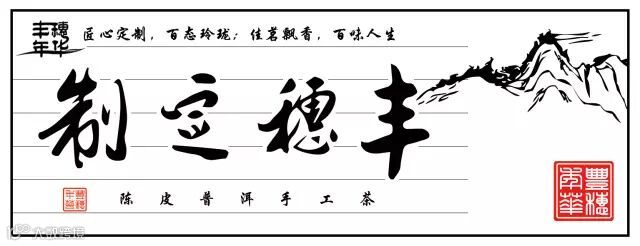 丰穗年华
匠心定制，百态玲珑；佳茗飘香，百味人生
丰穗定制
豐穗年華
陈皮普洱手工茶
豐穗年華
大数跨境